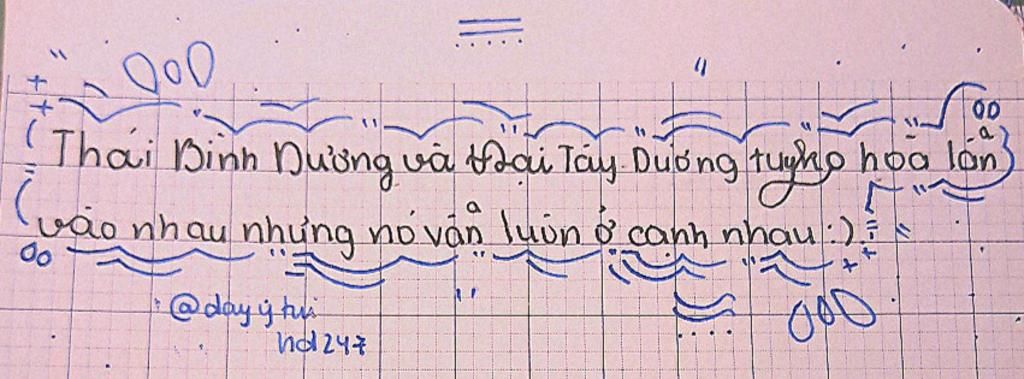 Thái Bình Dương và Đại Tây Dương tuy ko hòa lẫn
vào nhau nhưng nó vẫn luôn ở cạnh nhau :)
@dayytui
hd247